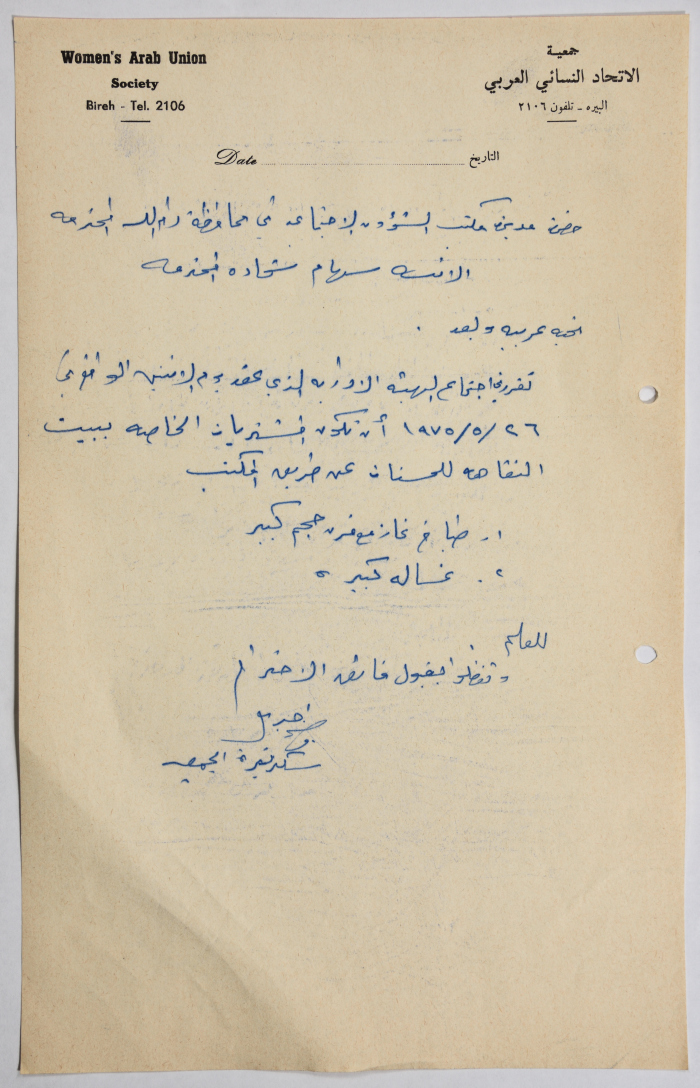 Women's Arab Union
Society
Bireh - Tel. 2106
جمعية
الاتحاد النسائي العربي
البيره - تلفون ٢١٠٦
Date التاريخ
حضرة مديرة مكتب الشؤون الاجتماعية في محافظة رام الله المحترمه
الانسه سهام شحاده المحترمه
تحيه عربيه وبعد .
تقرر في اجتماع الهيئه الاداريه الذي عقد يوم الاثنين الموافق في
٢٦/٥/١٩٧٥ أن تكون المشتريات الخاصه ببيت
النقاهه للمسنات عن طريق المكتب
١. طباخ غاز مع فرن حجم كبير
٢. غساله كبيره
للعلم
وتفضلوا بقبول فائق الاحترام
سكرتيرة الجمعيه